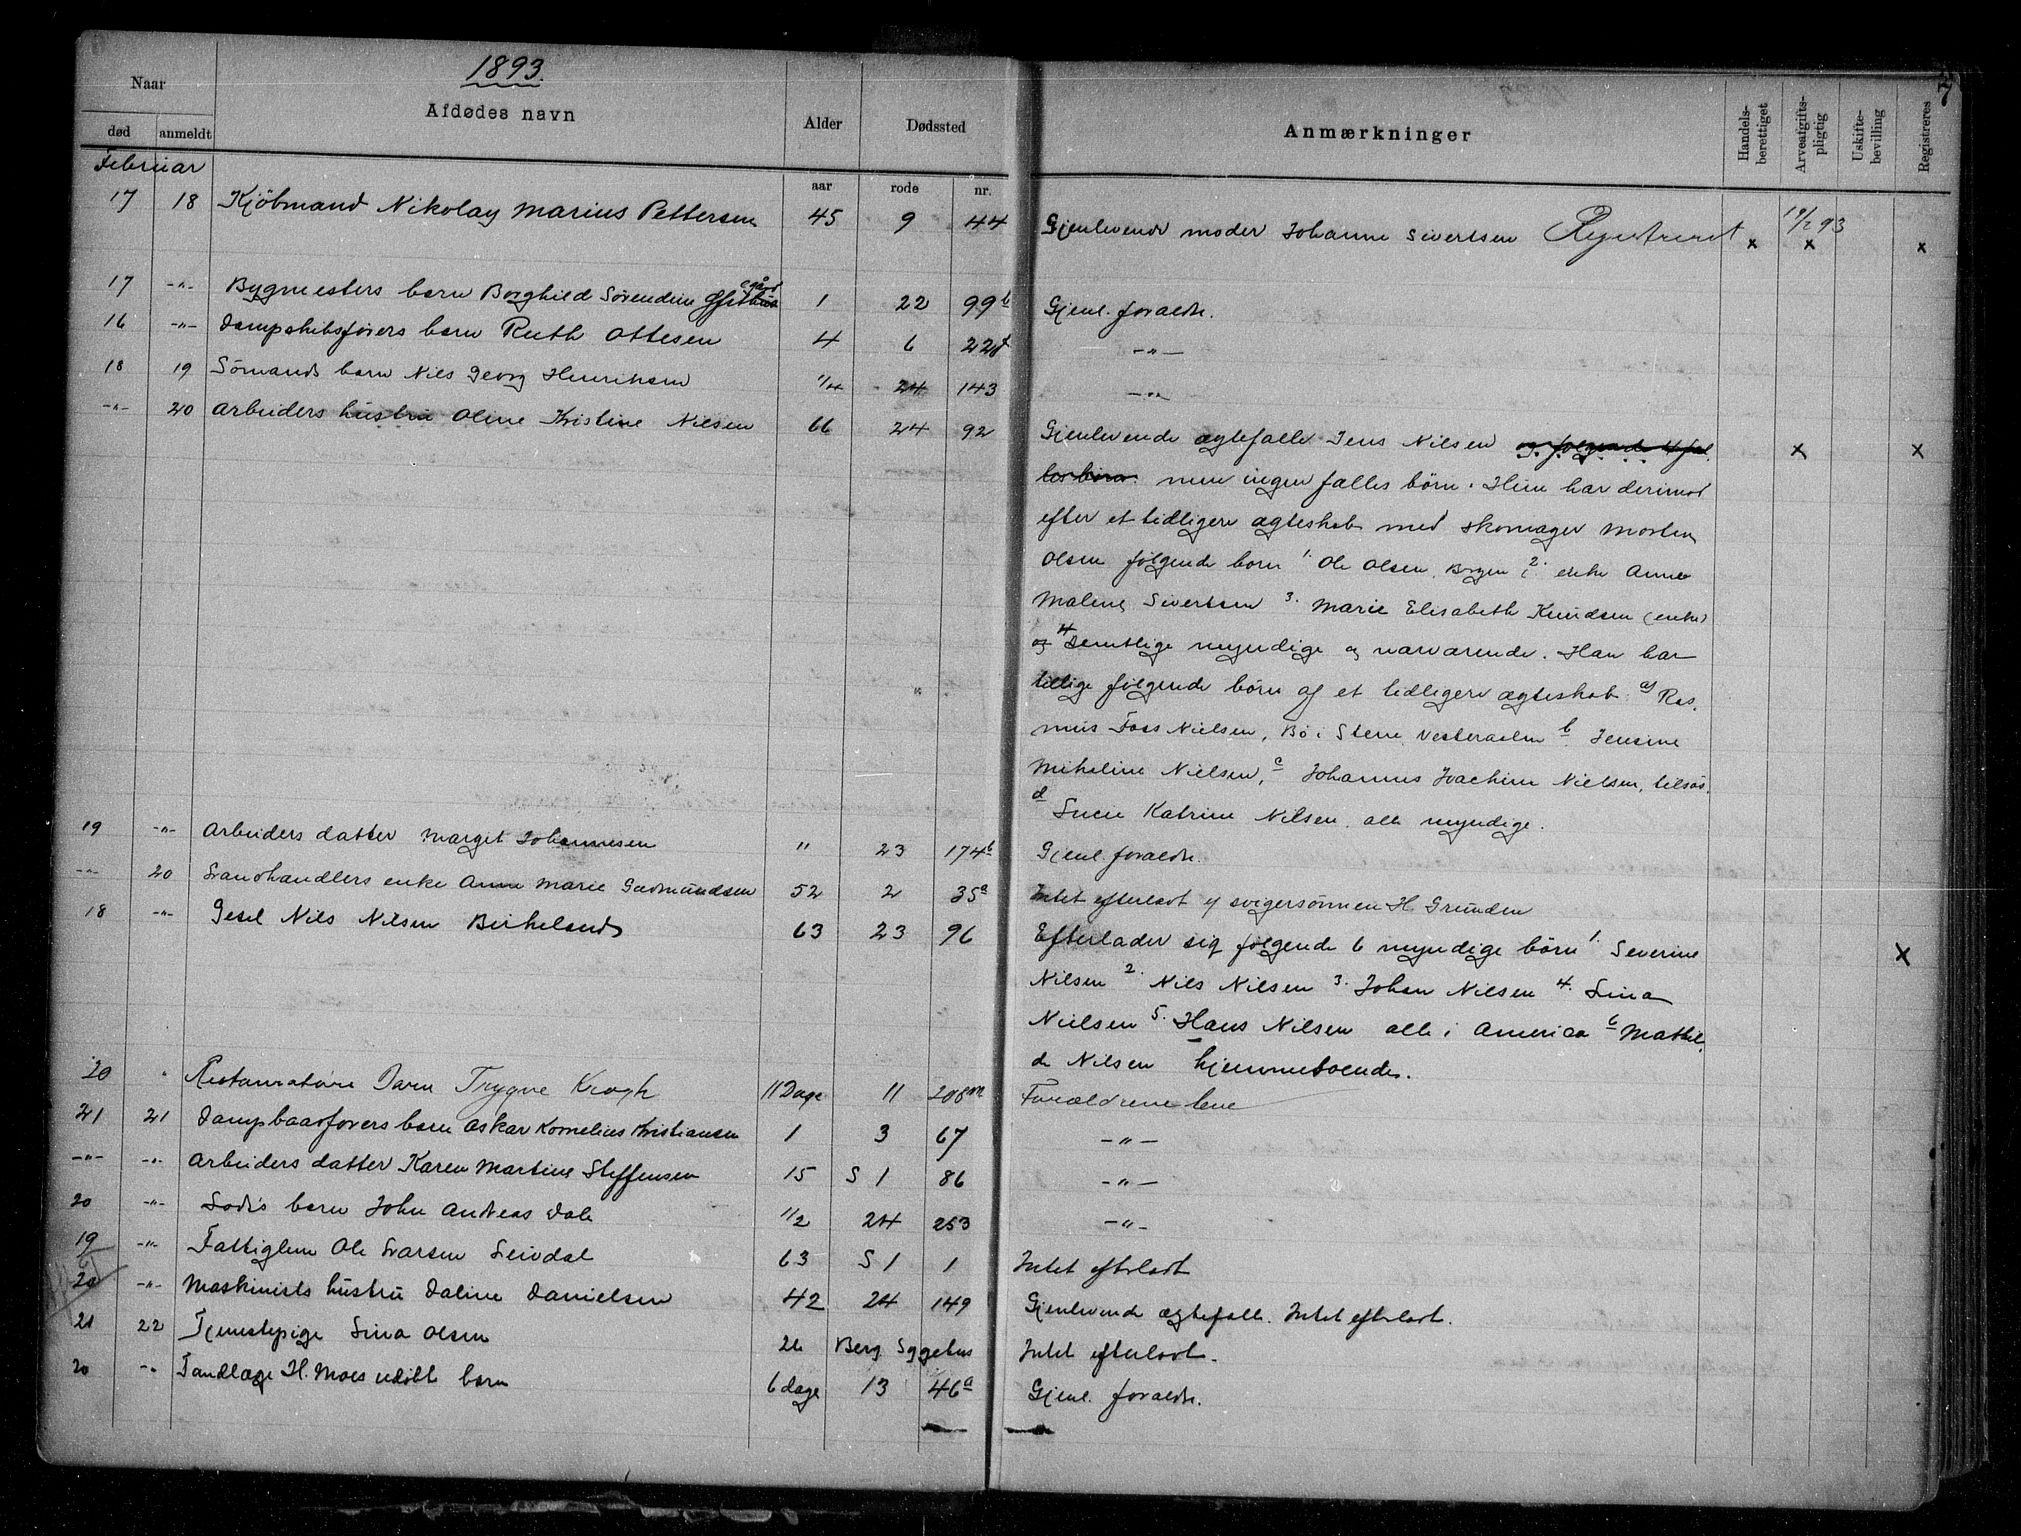 1893.
7
Naar
Afdødes navn
Alder
Dødssted
Anmærkninger
Handels-berettiget
Arveafgifts-pligtig
Uskifte-bevilling
Registreres
død anmeldt
aar rode nr.
Februar
17 18 Kjöbmand Nikolay Marius Pettersen 45 9 44 Gjenlevende moder Johanne Sivertsen Registreret x x x
17 -"- Bygmesters barn Borghild Sørendine 1 22 99b Gjenl. forældre.
16 -"- Dampskibsførers barn Ruth Ottesen 4 6 -"-
18 19 Sömands barn Nils Georg Henriksen 1/4 24 143 -"-
-"- 20 Arbeiders hustru Oline Kristine Nilsen 66 24 92 Gjenlevende ægtefælle Jens Nilsen og følgende 4 fæl- x x
les børn. men ingen fælles börn. Hun har derimod
efter et tidligere ægteskab med skomager Morten
Olsen følgende børn 1. Ole Olsen, 2. enke Anne
Malene Sivertsen 3. Marie Elisabeth Knudsen (enke)
og 4 Samtlige myndige og nærværende. Han har
tillige følgende børn af et tidligere ægteskab: a) Ras-
mus Foss Nielsen, Bø i Vesteraalen b Jensine
Mikeline Nielsen, c Johannes Joachim Nielsen, tilsøs.
d Lucie Katrine Nilsen. alle myndige.
19 -"- Arbeiders datter Marget Johannesen " 23 174b Gjenl. forældre.
-"- 20 Trandhandlers enke Anne Marie Gudmundsen 52 2 35a Intet efterladt af svigersønnen H. Grunden
18 -"- Gesel Nils Nilsen Birkeland 63 23 96 Efterlader sig følgende 6 myndige børn 1. Severine x
Nilsen 2. Nils Nilsen 3. Johan Nilsen 4. Lina
Nielsen 5. Hans Nilsen alle i America 6 Mathil-
de Nilsen hjemmeboende.
20 " Restauratörs Barn Trygve Krogh 11 Dage 11 208 Forældrene leve
21 21 Dampbaadførers barn Oskar Kornelius Kristiansen 1 3 67 -"-
-"- -"- Arbeiders datter Karen Martine Steffensen 15 S 1 86 -"-
20 -"- Lods barn John Andreas Dale 1/2 24 253 -"-
19 -"- Fattiglem Ole Larsen 63 S 1 1 Intet efterladt
20 -"- Maskinists hustru Daline Danielsen 42 24 149 Gjenlevende ægtefælle. Intet efterladt.
21 22 Tjenestepige Lina Olsen 26 Berg Sygehus Intet efterladt.
20 -"- Tandlæge H. Moes udöbt barn 6 dage 13 46a Gjenl. forældre.